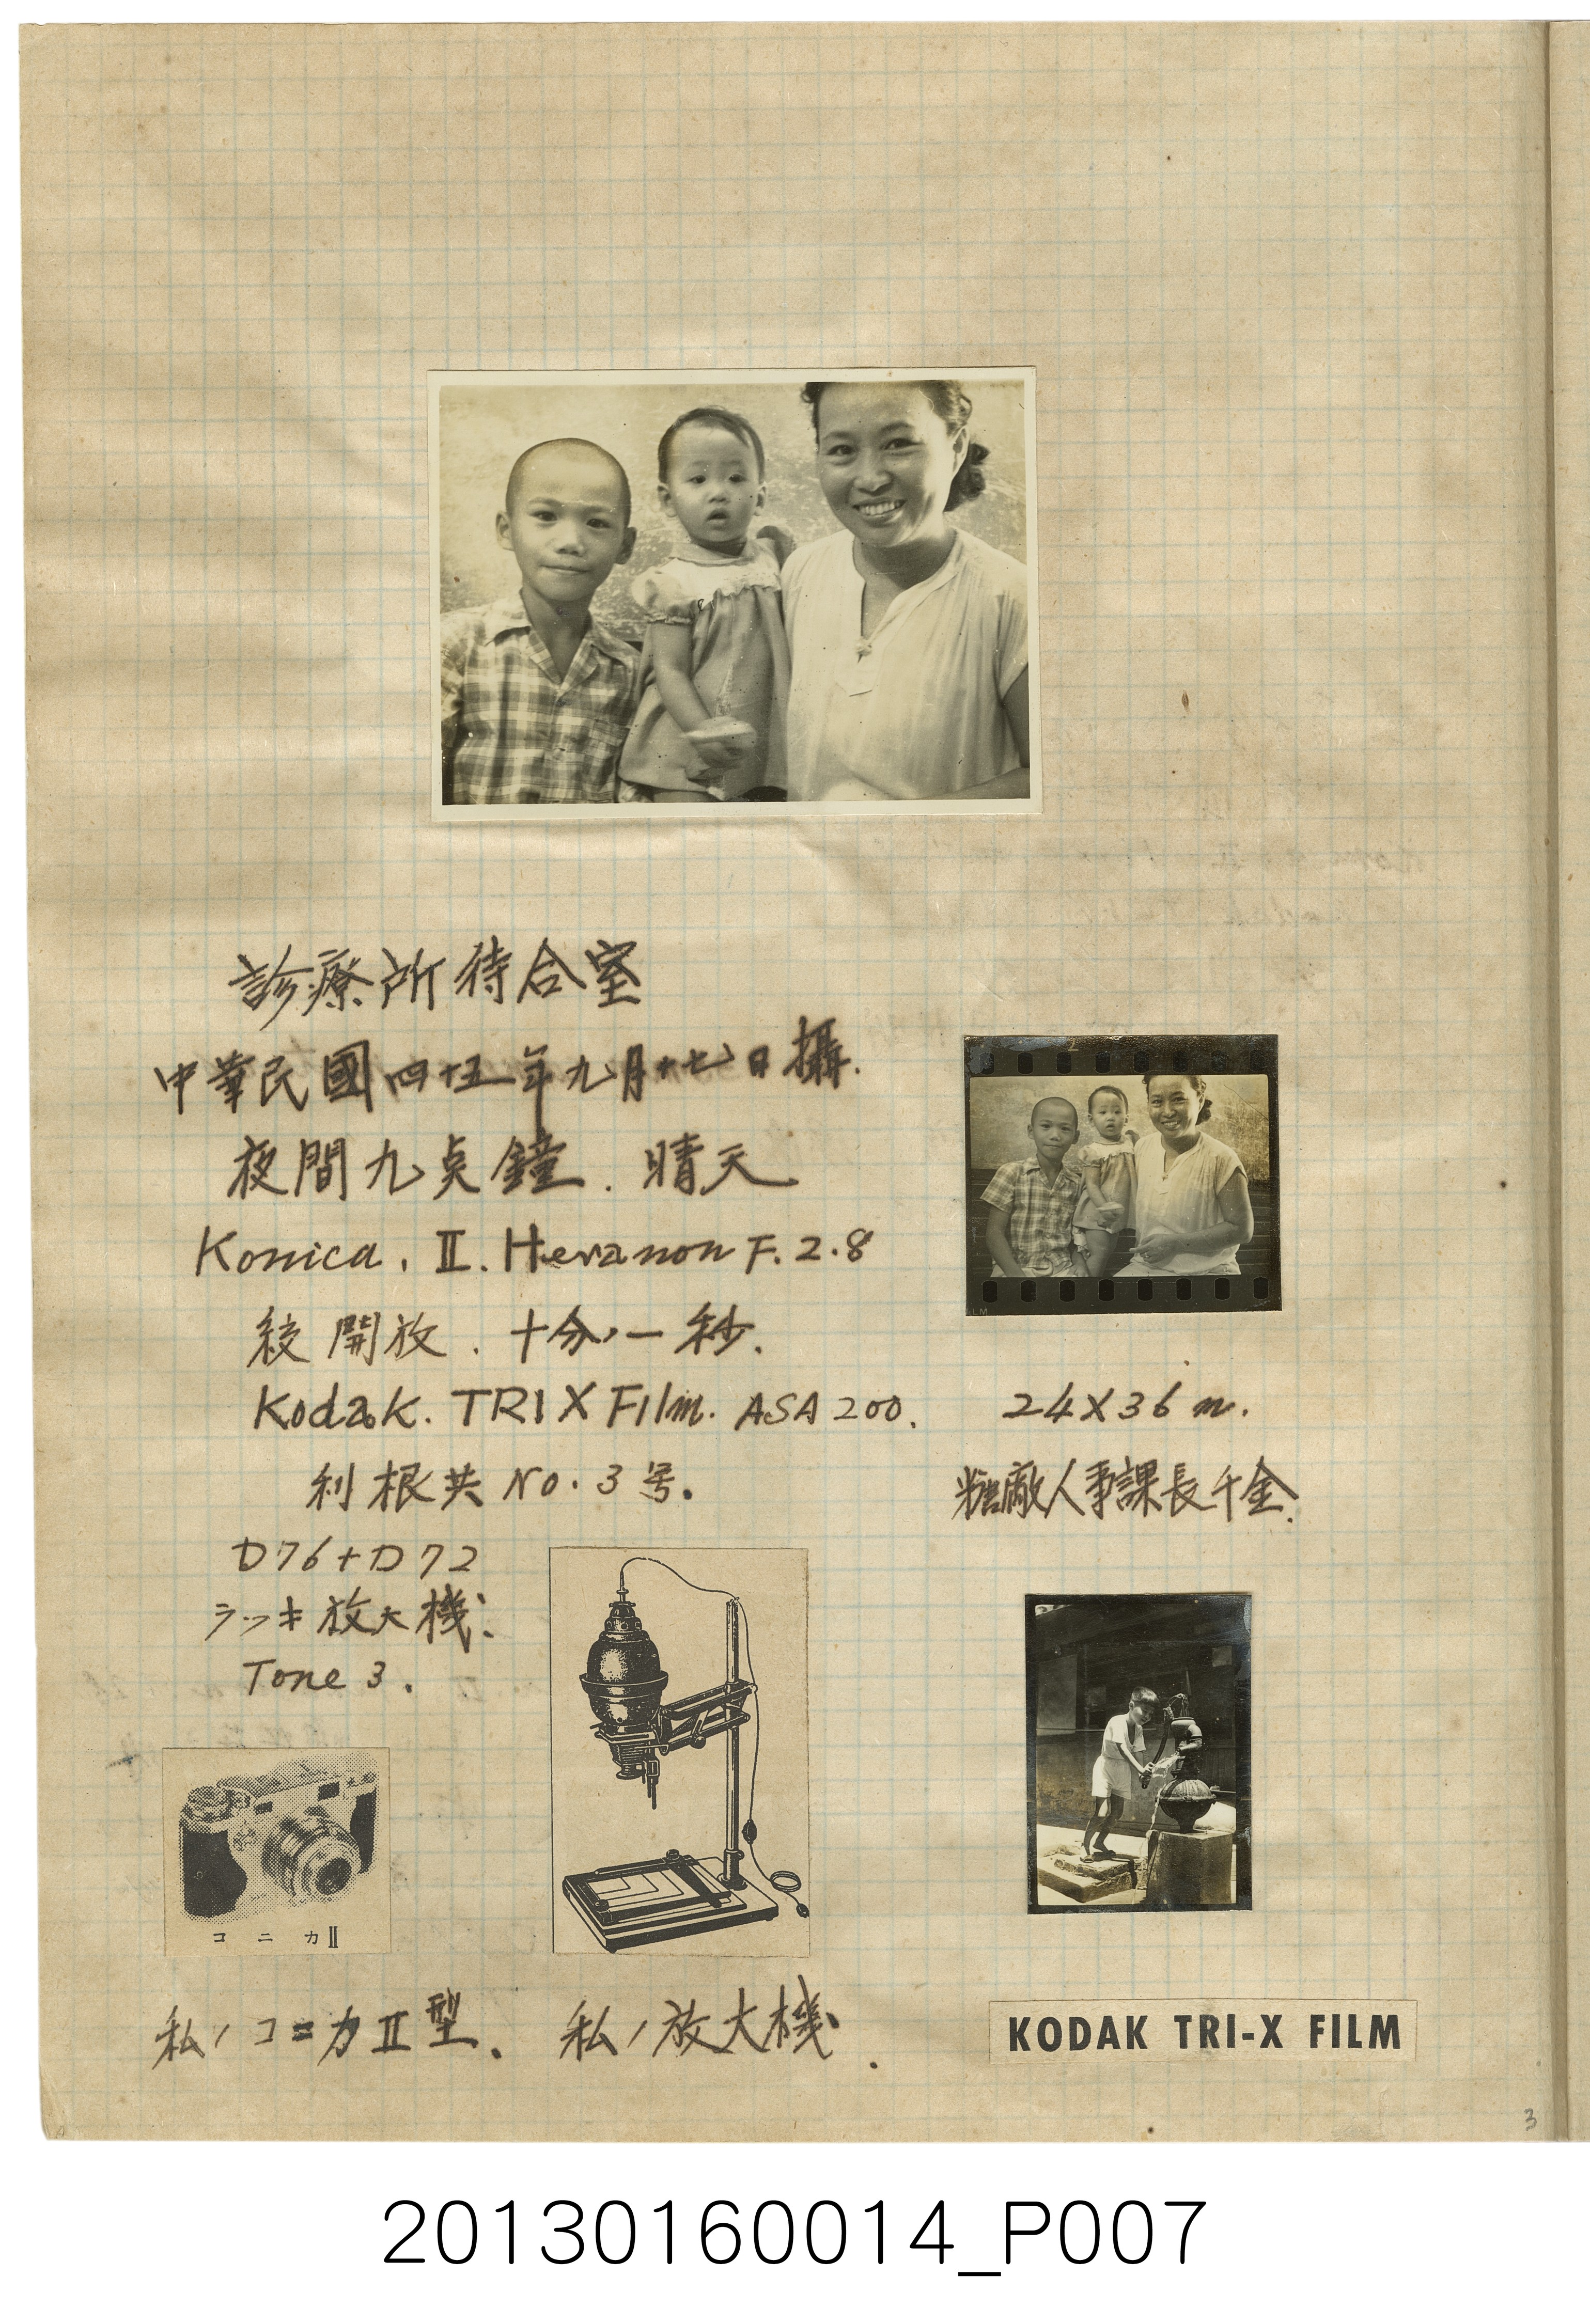 診療所待合室
中華民國四十五年九月十七日攝.
夜間九点鐘.晴天
Konica. II. Hexanon F.2.8
絞開放.十分ノ一秒.
Kodak. TRI X Film. ASA 200.
利根共 No.3号.
D76+D72
ラッキ放大機:
Tone 3.
24X36 m.
糖廠人事課長千金.
コニカⅡ
私ノコニカⅡ型.
私ノ放大機.
KODAK TRI-X FILM
3
20130160014_P007